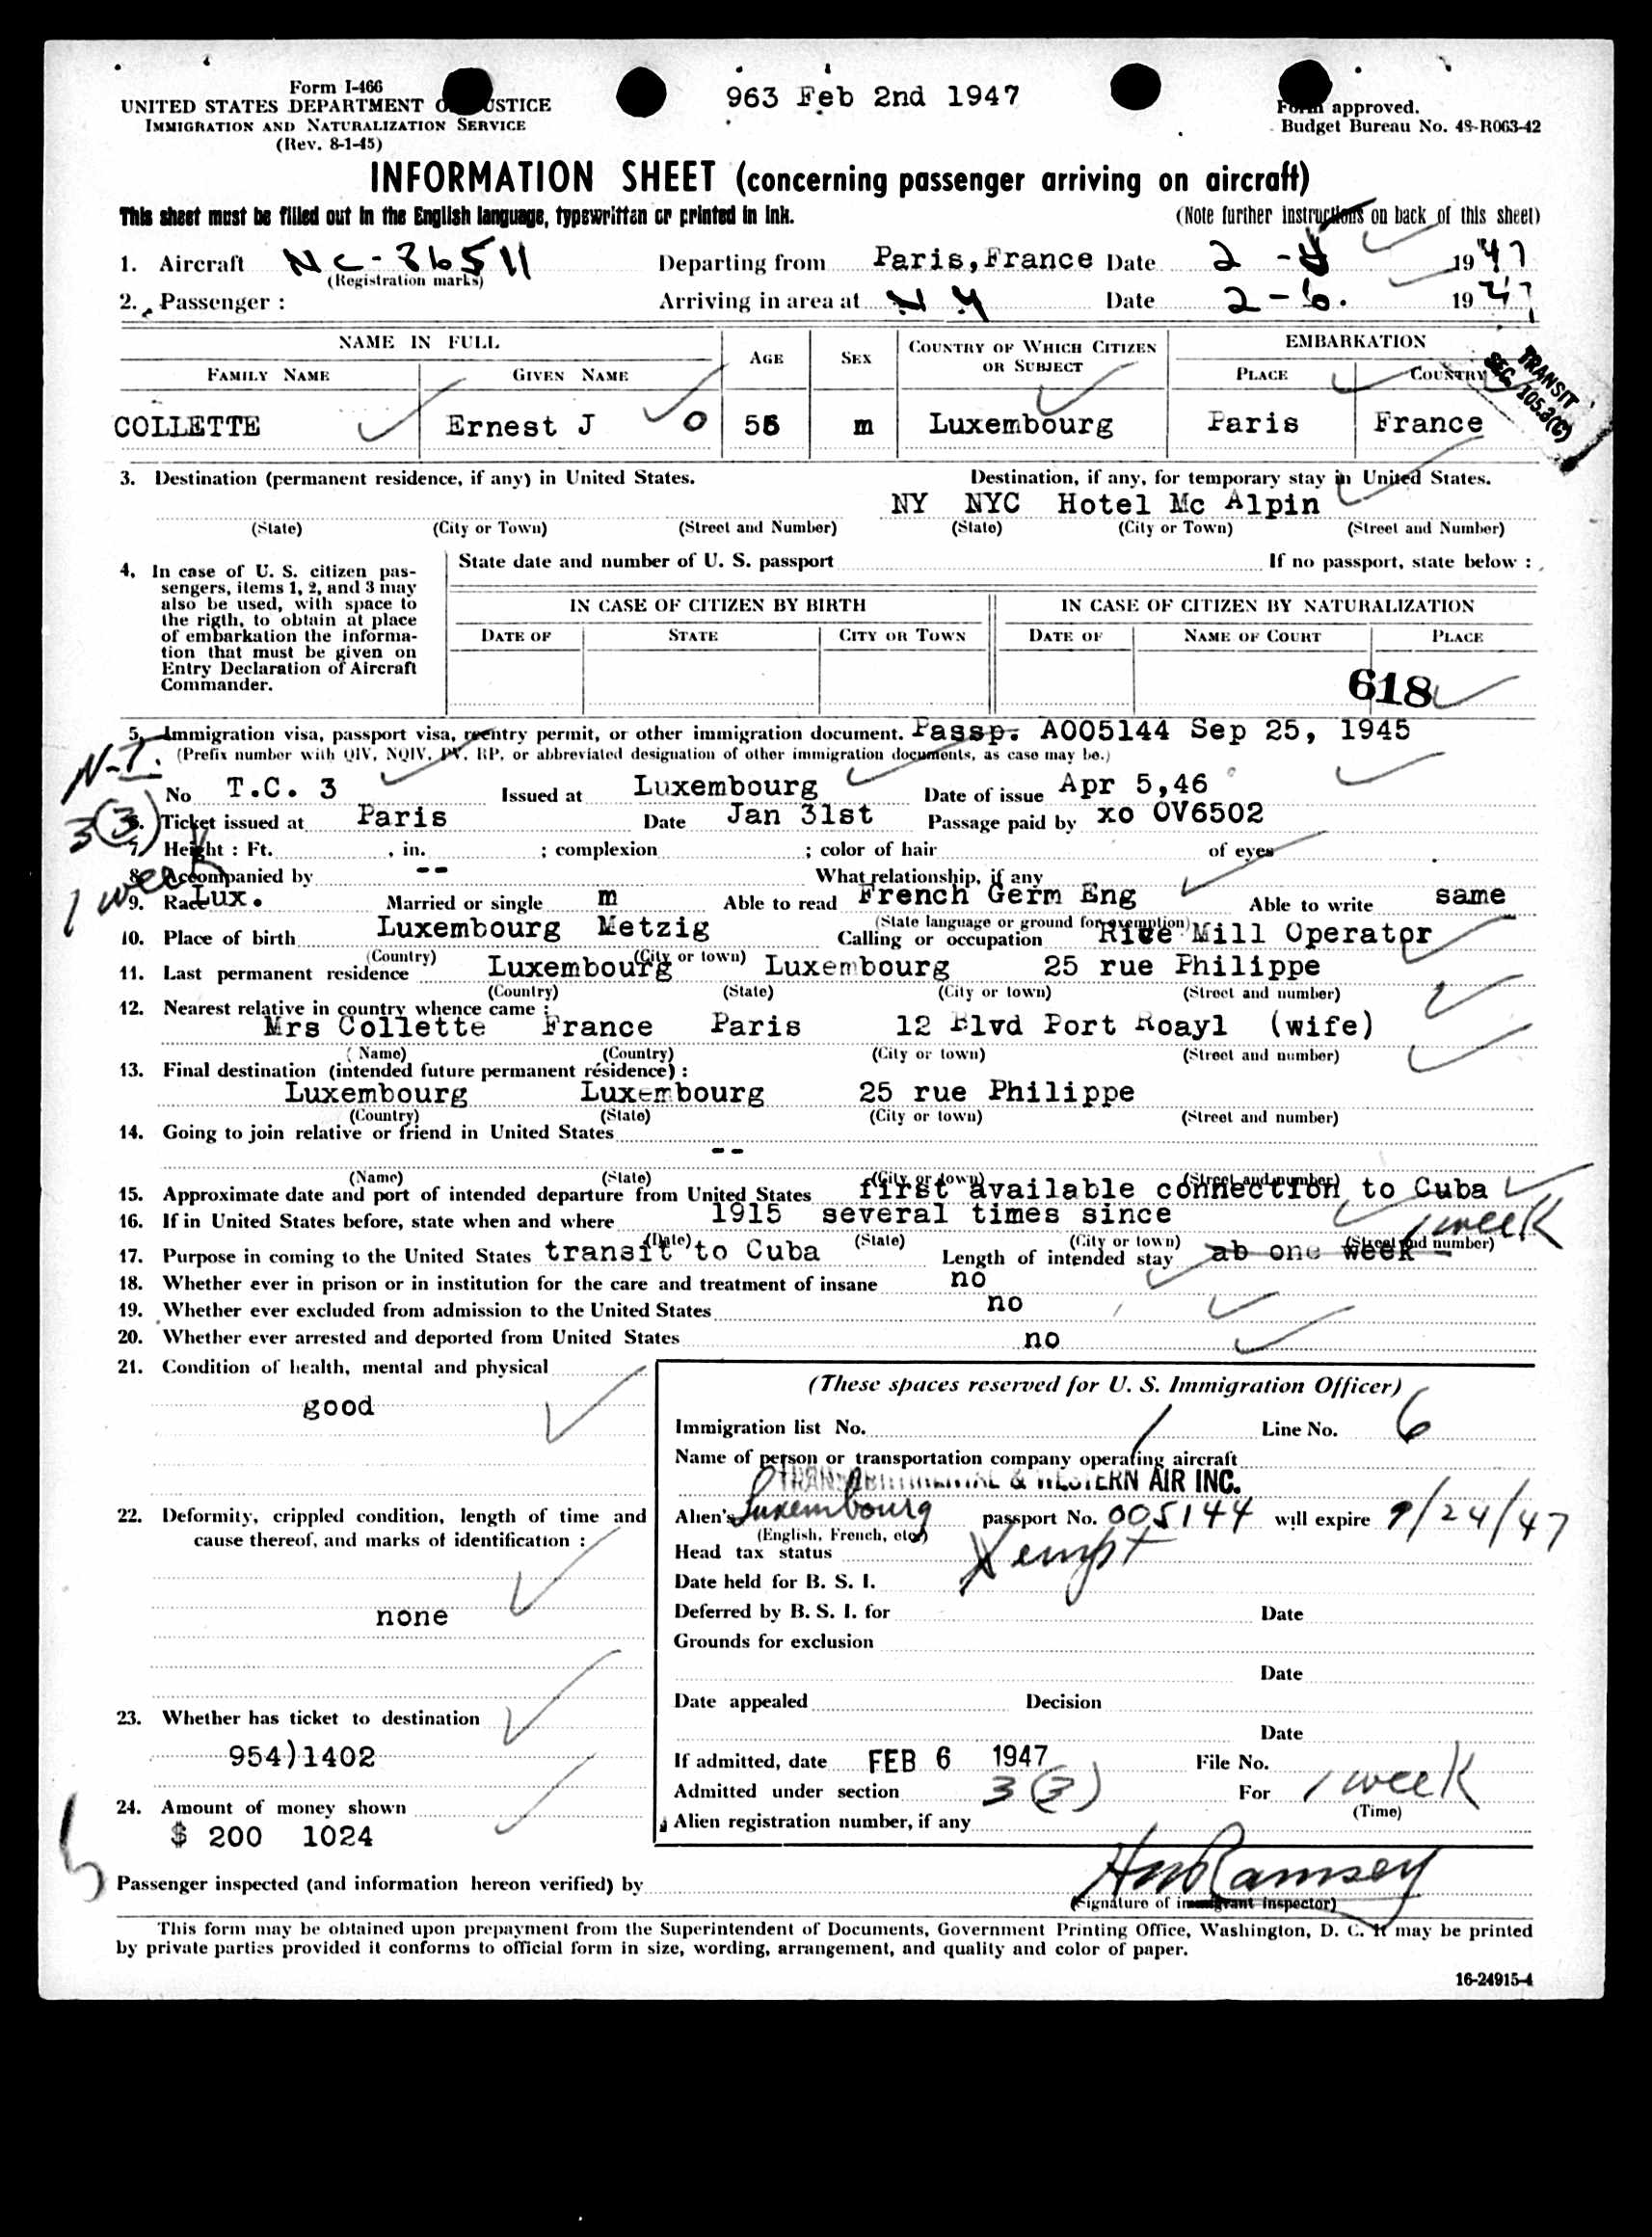 Form I-466
UNITED STATES DEPARTMENT OF JUSTICE
IMMIGRATION AND NATURALIZATION SERVICE
(Rev. 8-1-45)
963 Feb 2nd 1947
Form approved.
Budget Bureau No. 43-R063-42
INFORMATION SHEET (concerning passenger arriving on aircraft)
This sheet must be filled out in the English language, typewrittan or printed in ink. (Note further instructions on back of this sheet)
1. Aircraft NC-86511 Departing from Paris, France Date 2 - 1947
(Registration marks)
2. Passenger : Arriving in area at NY Date 2-6. 1947
NAME IN FULL AGE SEX COUNTRY OF WHICH CITIZEN OR SUBJECT EMBARKATION
FAMILY NAME GIVEN NAME PLACE COUNTRY
TRANSIT
SEC. 105.3(C)
COLLETTE Ernest J O 56 m Luxembourg Paris France
3. Destination (permanent residence, if any) in United States. Destination, if any, for temporary stay in United States.
NY NYC Hotel Mc Alpin
(State) (City or Town) (Street and Number) (State) (City or Town) (Street and Number)
4. In case of U. S. citizen pas-
sengers, items 1, 2, and 3 may
also be used, with space to
the rigth, to obtain at place
of embarkation the informa-
tion that must be given on
Entry Declaration of Aircraft
Commander.
State date and number of U. S. passport If no passport, state below :
IN CASE OF CITIZEN BY BIRTH IN CASE OF CITIZEN BY NATURALIZATION
DATE OF STATE CITY OR TOWN DATE OF NAME OF COURT PLACE
618
5. Immigration visa, passport visa, reentry permit, or other immigration document. Passp. A005144 Sep 25, 1945
(Prefix number with QIV, NQIV, PV, RP, or abbreviated designation of other immigration documents, as case may be.)
N-T.
3(3)
1 week
No T.C. 3 Issued at Luxembourg Date of issue Apr 5,46
6. Ticket issued at Paris Date Jan 31st Passage paid by xo OV6502
7. Height : Ft. , in. ; complexion ; color of hair of eyes
8. Accompanied by -- What relationship, if any
9. Race Lux. Married or single m Able to read French Germ Eng Able to write same
(State language or ground for exemption)
10. Place of birth Luxembourg Metzig Calling or occupation Rice Mill Operator
(Country) (City or town)
11. Last permanent residence Luxembourg Luxembourg 25 rue Philippe
(Country) (State) (City or town) (Street and number)
12. Nearest relative in country whence came :
Mrs Collette France Paris 12 Blvd Port Roayl (wife)
(Name) (Country) (City or town) (Street and number)
13. Final destination (intended future permanent résidence) :
Luxembourg Luxembourg 25 rue Philippe
(Country) (State) (City or town) (Street and number)
14. Going to join relative or friend in United States
--
(Name) (State) (City or town) (Street and number)
15. Approximate date and port of intended departure from United States first available connection to Cuba
16. If in United States before, state when and where 1915 several times since
(Date) (State) (City or town) (Street and number)
1 week
17. Purpose in coming to the United States transit to Cuba Length of intended stay ab one week
18. Whether ever in prison or in institution for the care and treatment of insane no
19. Whether ever excluded from admission to the United States no
20. Whether ever arrested and deported from United States no
21. Condition of health, mental and physical
good
22. Deformity, crippled condition, length of time and
cause thereof, and marks of identification :
none
23. Whether has ticket to destination
954)1402
24. Amount of money shown
$ 200 1024
(These spaces reserved for U. S. Immigration Officer)
Immigration list No. 1 Line No. 6
Name of person or transportation company operating aircraft
TRANSCONTINENTAL & WESTERN AIR INC.
Alien's Luxembourg passport No. 005144 will expire 9/24/47
(English, French, etc.)
Head tax status Xempt
Date held for B. S. I.
Deferred by B. S. I. for Date
Grounds for exclusion
Date
Date appealed Decision
Date
If admitted, date FEB 6 1947 File No.
Admitted under section 3(3) For 1 week
(Time)
Alien registration number, if any
Passenger inspected (and information hereon verified) by HW Ramsey
(Signature of immigrant inspector)
This form may be obtained upon prepayment from the Superintendent of Documents, Government Printing Office, Washington, D. C. It may be printed
by private parties provided it conforms to official form in size, wording, arrangement, and quality and color of paper.
16-24915-4